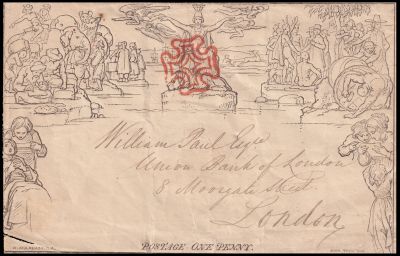 William Paul Esqre
Union Bank of London
8 Moorgate Street
London
POSTAGE ONE PENNY.